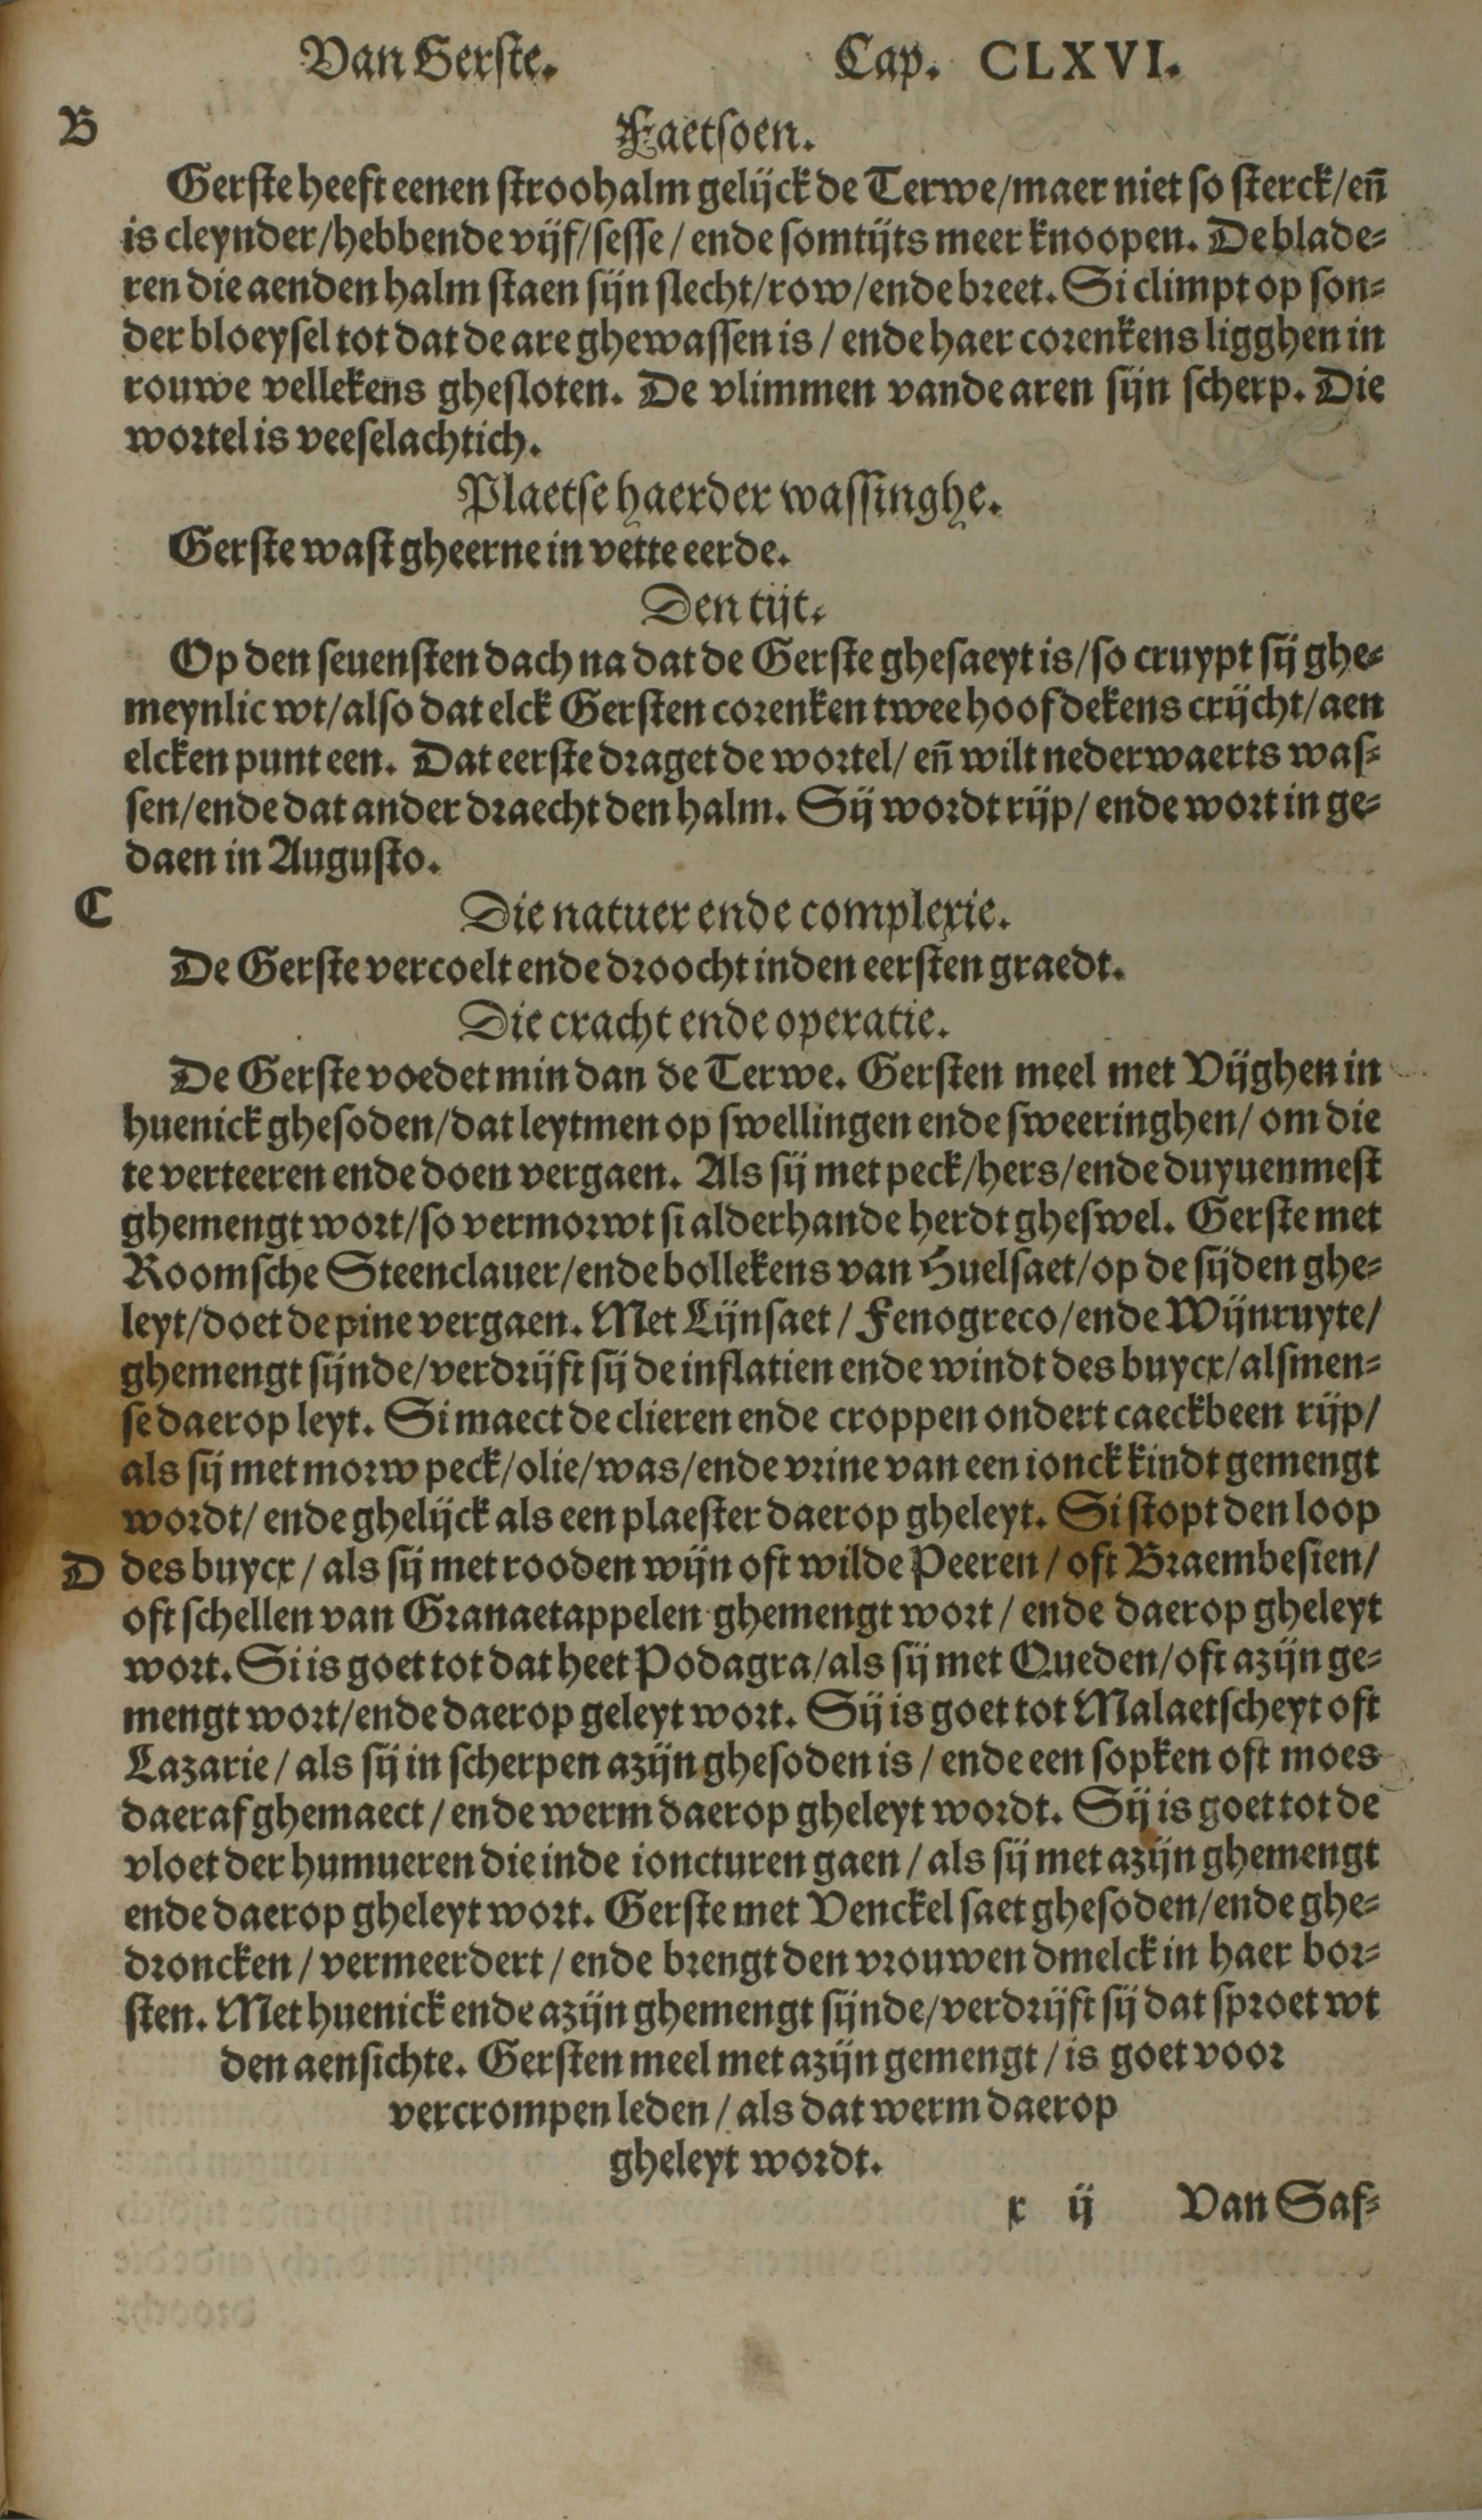 Van Gerste. Cap. CLXVI.
B
Faetsoen.
Gerste heeft eenen stroohalm gelijck de Terwe/maer niet so sterck/en̄
is cleynder/hebbende vijf/sesse/ende somtijts meer knoopen. De blade-
ren die aenden halm staen sijn slecht/row/ende breet. Si climpt op son-
der bloeysel tot dat de are ghewassen is/ende haer corenkens ligghen in
rouwe vellekens ghesloten. De vlimmen vande aren sijn scherp. Die
wortel is veeselachtich.
Plaetse haerder wassinghe.
Gerste wast gheerne in vette eerde.
Den tijt.
Op den seuensten dach na dat de Gerste ghesaeyt is/so cruypt sij ghe-
meynlic wt/also dat elck Gersten corenken twee hoofdekens crijcht/aen
elcken punt een. Dat eerste draget de wortel/en̄ wilt nederwaerts was-
sen/ende dat ander draecht den halm. Sij wordt rijp/ende wort in ge-
daen in Augusto.
C
Die natuer ende complexie.
De Gerste vercoelt ende droocht inden eersten graedt.
Die cracht ende operatie.
De Gerste voedet min dan de Terwe. Gersten meel met Vijghen in
huenick ghesoden/dat leytmen op swellingen ende sweeringhen/om die
te verteeren ende doen vergaen. Als sij met peck/hers/ende duyuenmest
ghemengt wort/so vermorwt si alderhande herdt gheswel. Gerste met
Roomsche Steenclauer/ende bollekens van Huelsaet/op de sijden ghe-
leyt/doet de pine vergaen. Met Lijnsaet/Fenogreco/ende Wijnruyte/
ghemengt sijnde/verdrijft sij de inflatien ende windt des buycx/alsmen-
se daerop leyt. Si maect de clieren ende croppen ondert caeckbeen rijp/
als sij met morw peck/olie/was/ende vrine van een ionck kindt gemengt
wordt/ende ghelijck als een plaester daerop gheleyt. Si stopt den loop
D des buycx/als sij met rooden wijn oft wilde Peeren/oft Braembesien/
oft schellen van Granaetappelen ghemengt wort/ende daerop gheleyt
wort. Si is goet tot dat heet Podagra/als sij met Queden/oft azijn ge-
mengt wort/ende daerop geleyt wort. Sij is goet tot Malaetscheyt oft
Lazarie/als sij in scherpen azijn ghesoden is/ende een sopken oft moes
daeraf ghemaect/ende werm daerop gheleyt wordt. Sij is goet tot de
vloet der humueren die inde ioncturen gaen/als sij met azijn ghemengt
ende daerop gheleyt wort. Gerste met Venckel saet ghesoden/ende ghe-
droncken/vermeerdert/ende brengt den vrouwen dmelck in haer bor-
sten. Met huenick ende azijn ghemengt sijnde/verdrijft sij dat sproet wt
den aensichte. Gersten meel met azijn gemengt/is goet voor
vercrompen leden/als dat werm daerop
gheleyt wordt.
x ij Van Saf-